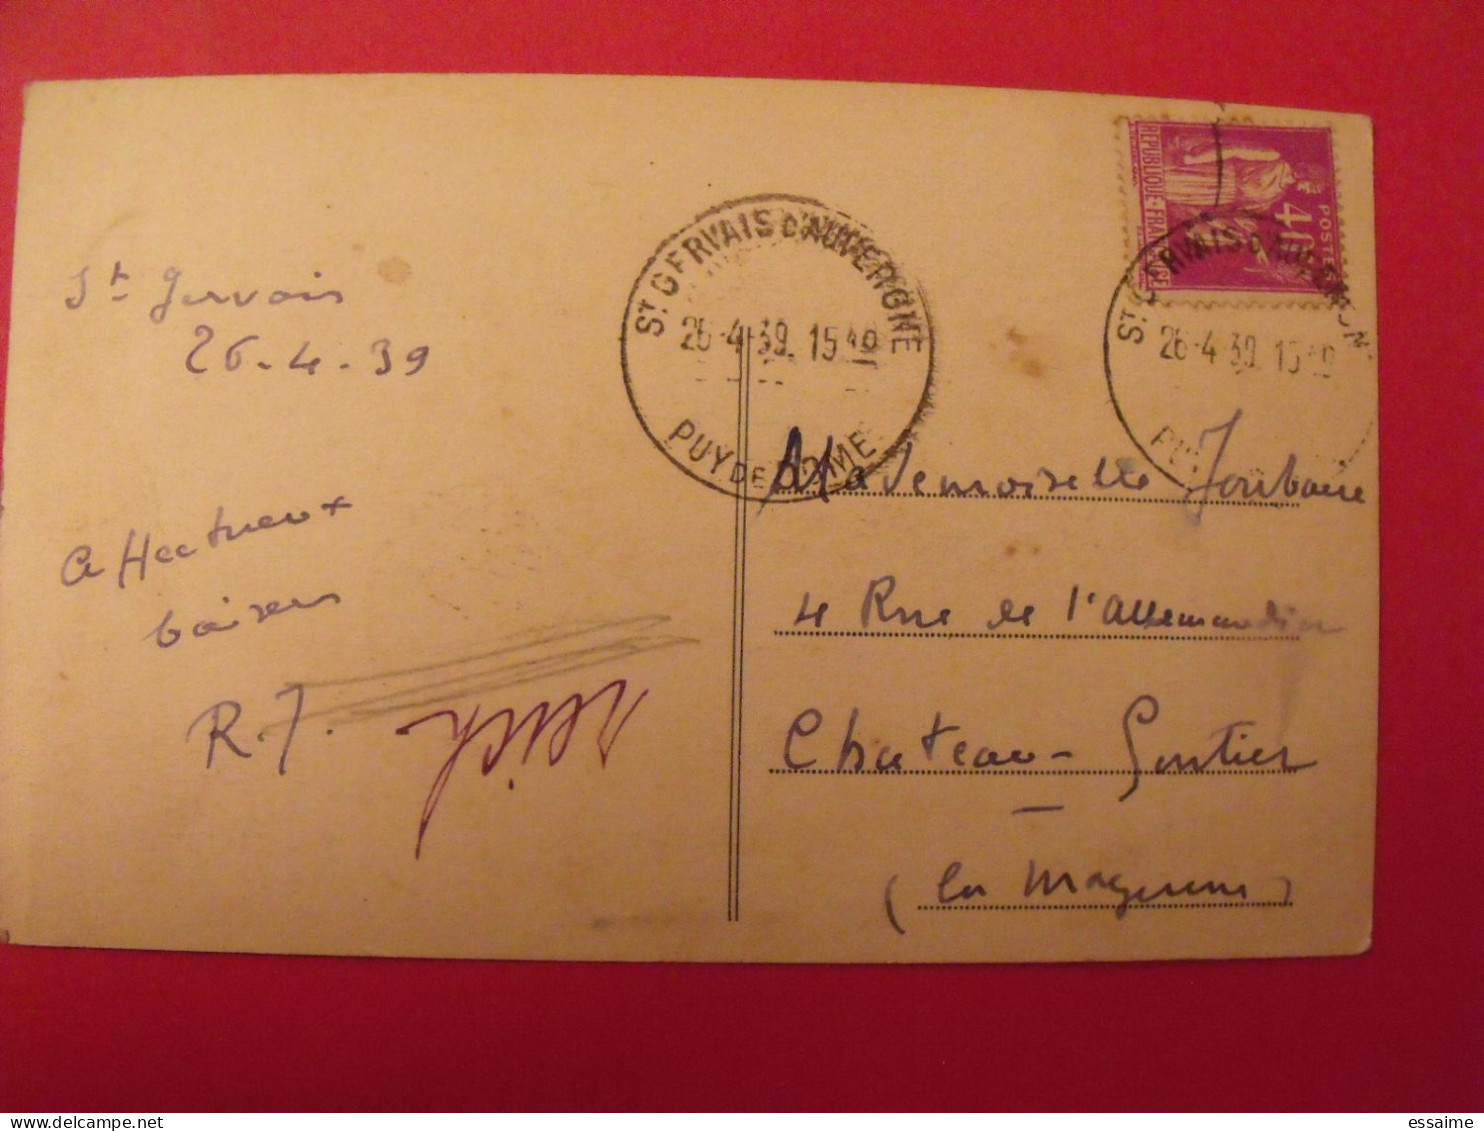 St Gervais
26-4-39
affectueux
baisers
R.J.
ST GERVAIS D'AUVERGNE
26-4-39 15
PUY DE DOME
REPUBLIQUE FRANÇAISE
POSTES
40c
ST GERVAIS D'AUVERGN
26-4-39
Mademoiselle
4 Rue de l'Allemandier
Chateau-Gontier
(la Mayenne)
delcampe.net
essaime